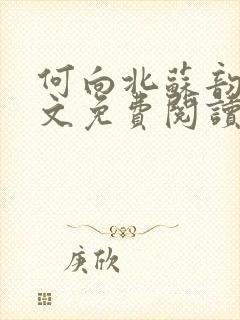 何向北蘇韵
文免費閱讀
庚欣